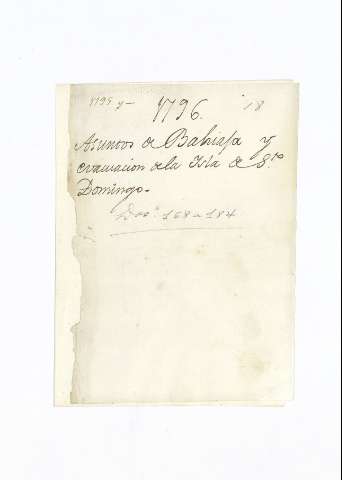 1795 y — 1796. 18
Asuntos de Bahiaja y
evacuacion de la Isla de Sto
Domingo.
Docs. 168 a 184